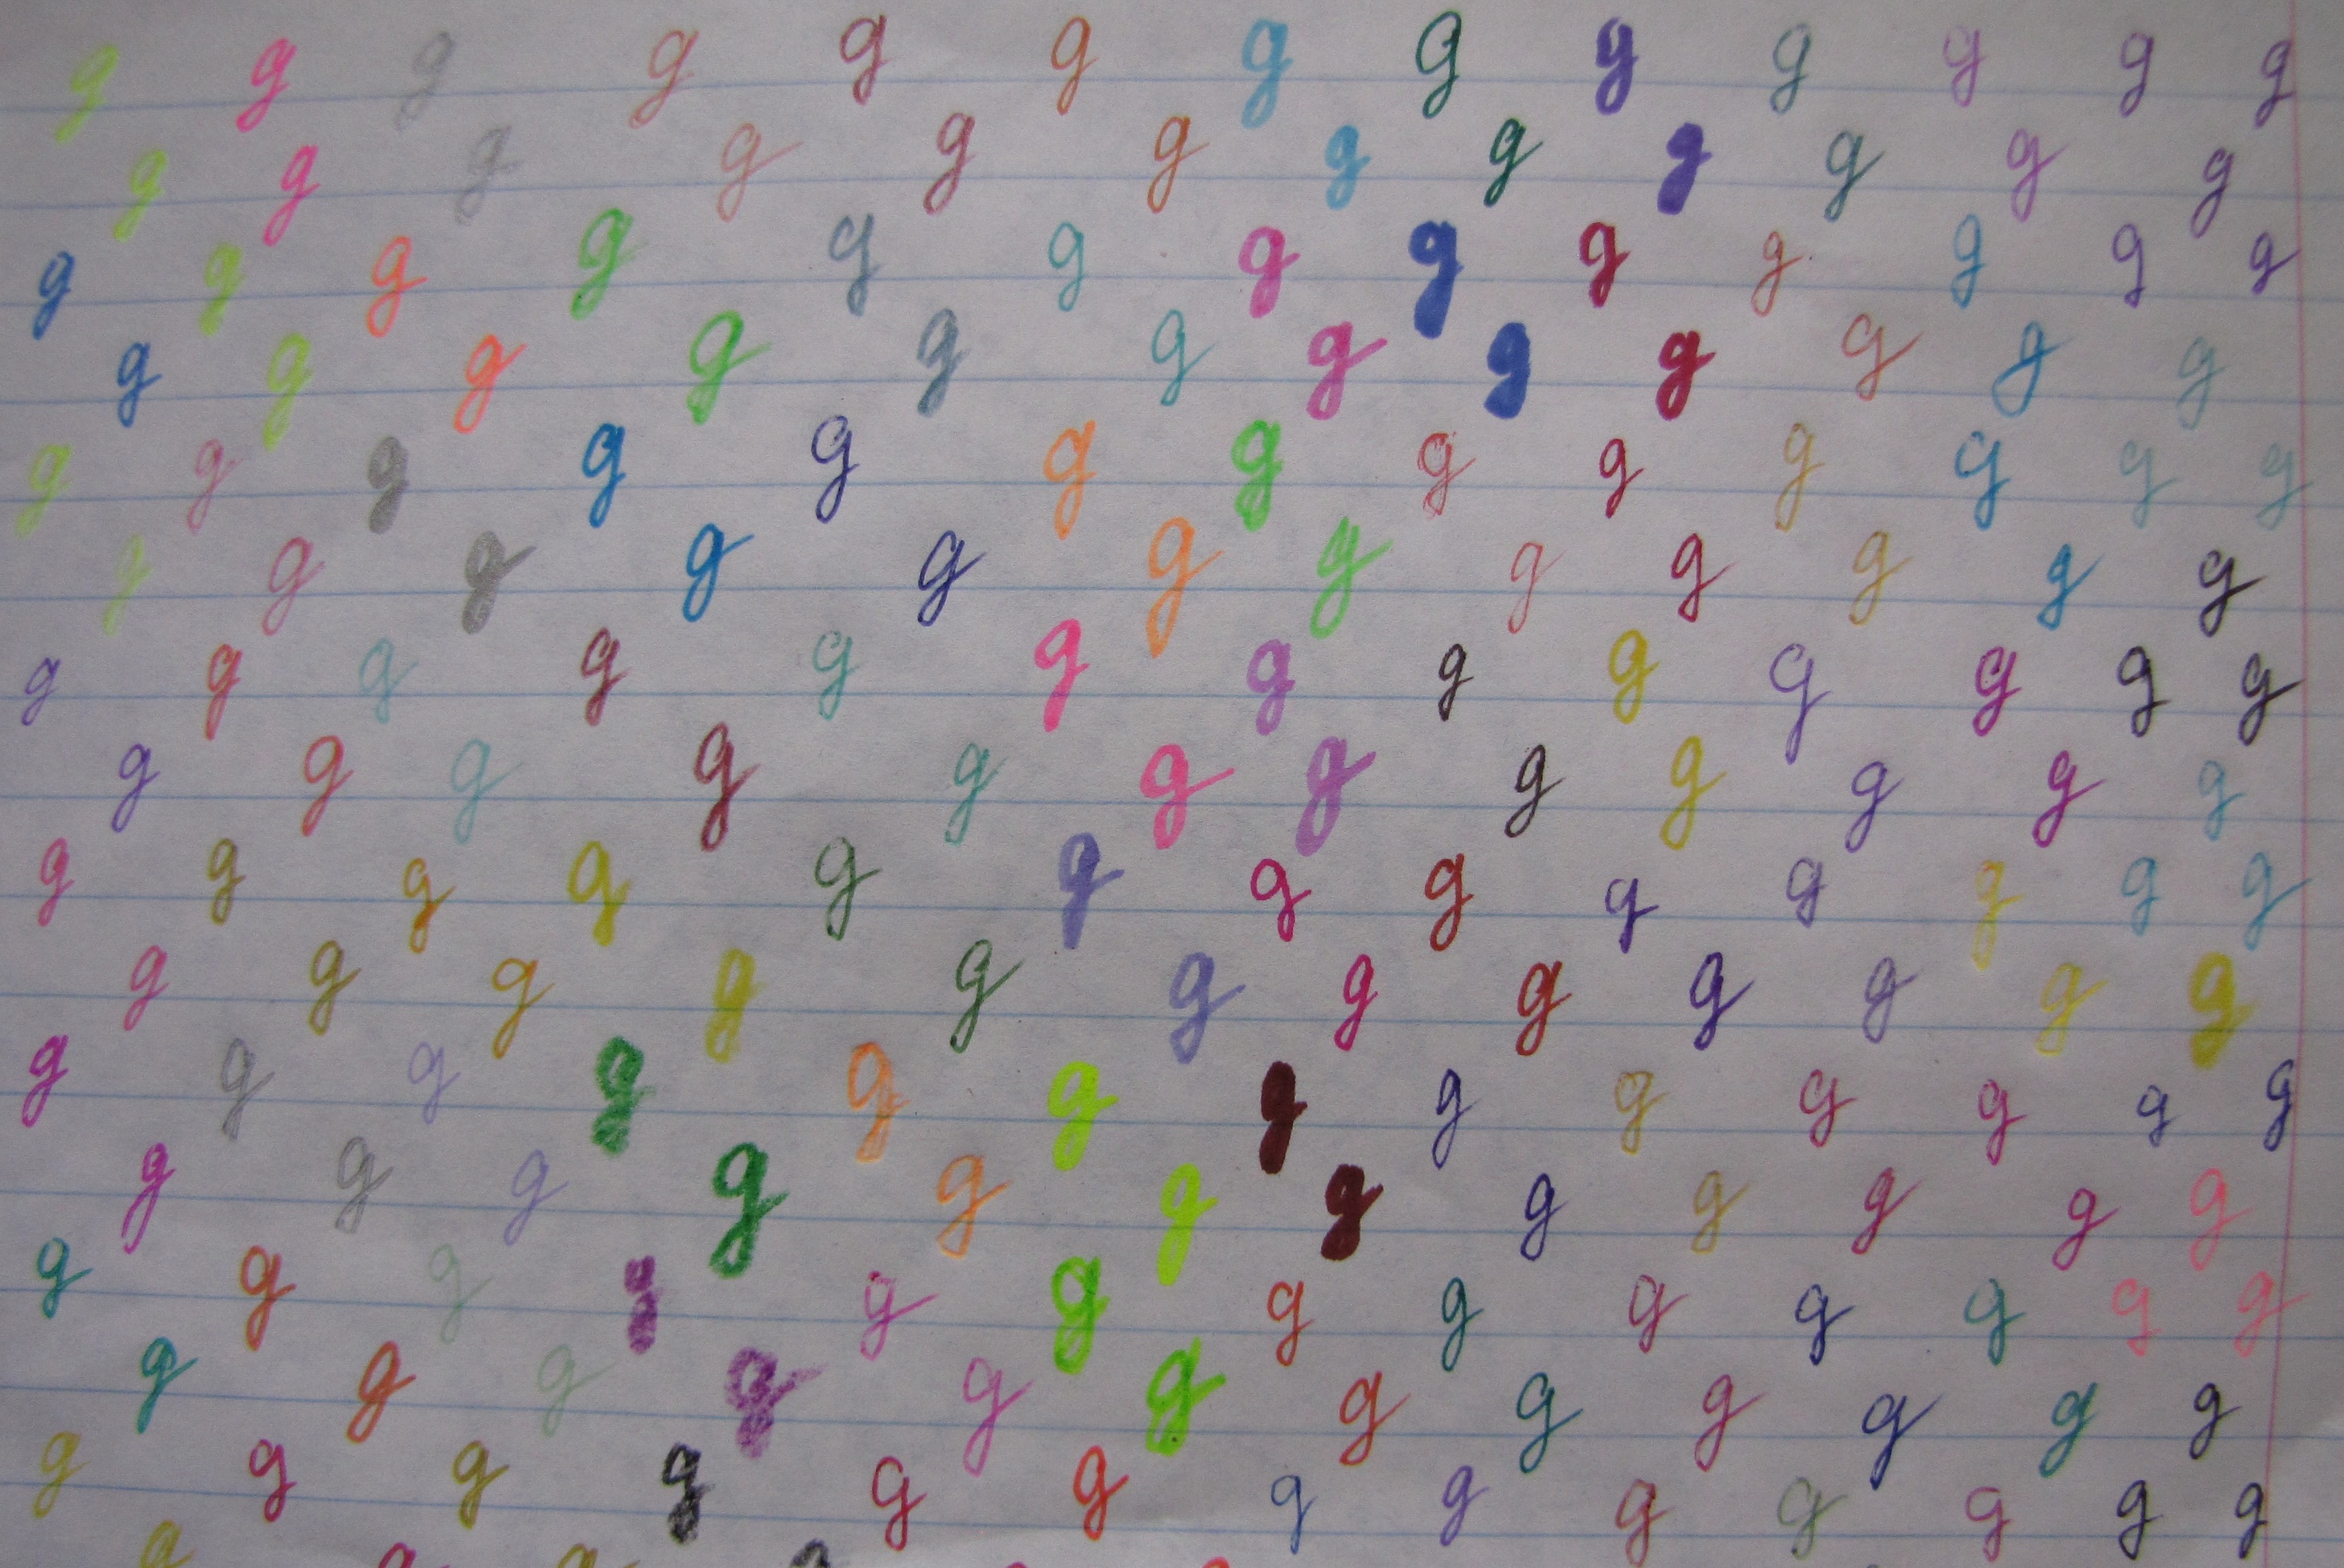 g g g g g g g g g g g g g
g g g g g g g g g g g g
g g g g g g g g g g g g g
g g g g g g g g g g g g
g g g g g g g g g g g g g
g g g g g g g g g g g g
g g g g g g g g g g g g g
g g g g g g g g g g g g
g g g g g g g g g g g g g
g g g g g g g g g g g g
g g g g g g g g g g g g g
g g g g g g g g g g g g
g g g g g g g g g g g g g
g g g g g g g g g g g g
g g g g g g g g g g g g g